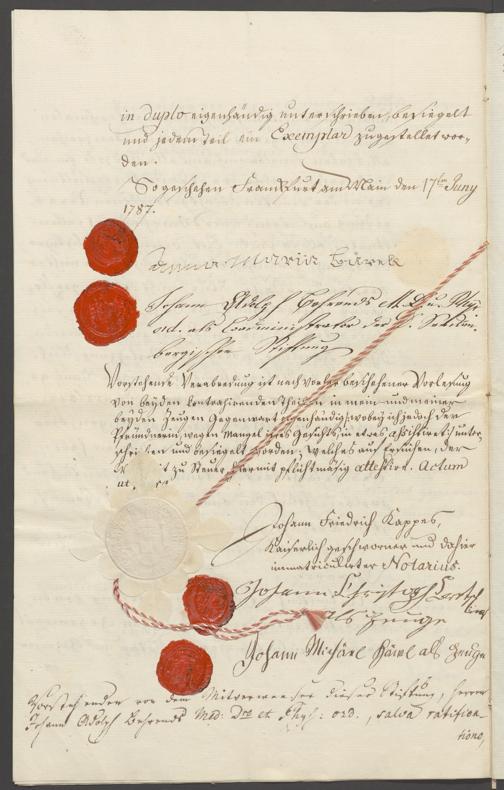 in duplo eigenhändig unterschrieben, besiegelt
und jedem Teil ein Exemplar zugestellet wor-
den.
So geschehen Franckfurt am Main den 17ten Juny
1787.
Anna Maria
Johann Adolph Behrends
ord. als Coadministrator der
bergischen Stiftung
Vorstehende Verabredung ist nach vorher beschehener Vorlesung
von beyden kontrahirenden Theilen in mein und meiner
beyden Zeugen Gegenwart eigenhändig, wobey ich jedoch der
Pfründnerin, wegen Mangel ihres Gesichts, in etwas assistiret, unter-
schrieben und besiegelt worden; welches auf Ersuchen, der
zu Steuer, hiermit pflichtmäsig attestire. Actum
ut.
Johann Friedrich Kappes,
Kaiserlich geschworner und dahier
immatriculirter Notarius.
Johann Christoph
als Zeuge
Johann Michael als Zeuge
Vorstehender von dem Mitverweser dieser Stiftung, Herrn
Johann Adolph Behrends Med: Dre et Phys: ord., salva ratifica-
tione,